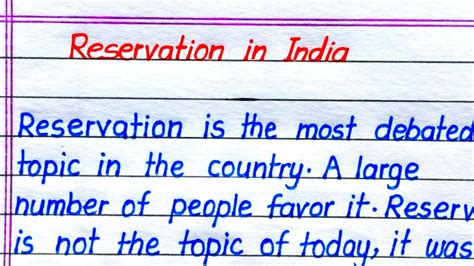 Reservation in India
Reservation is the most debated
topic in the country. A large
number of people favor it. Reserv
is not the topic of today, it was